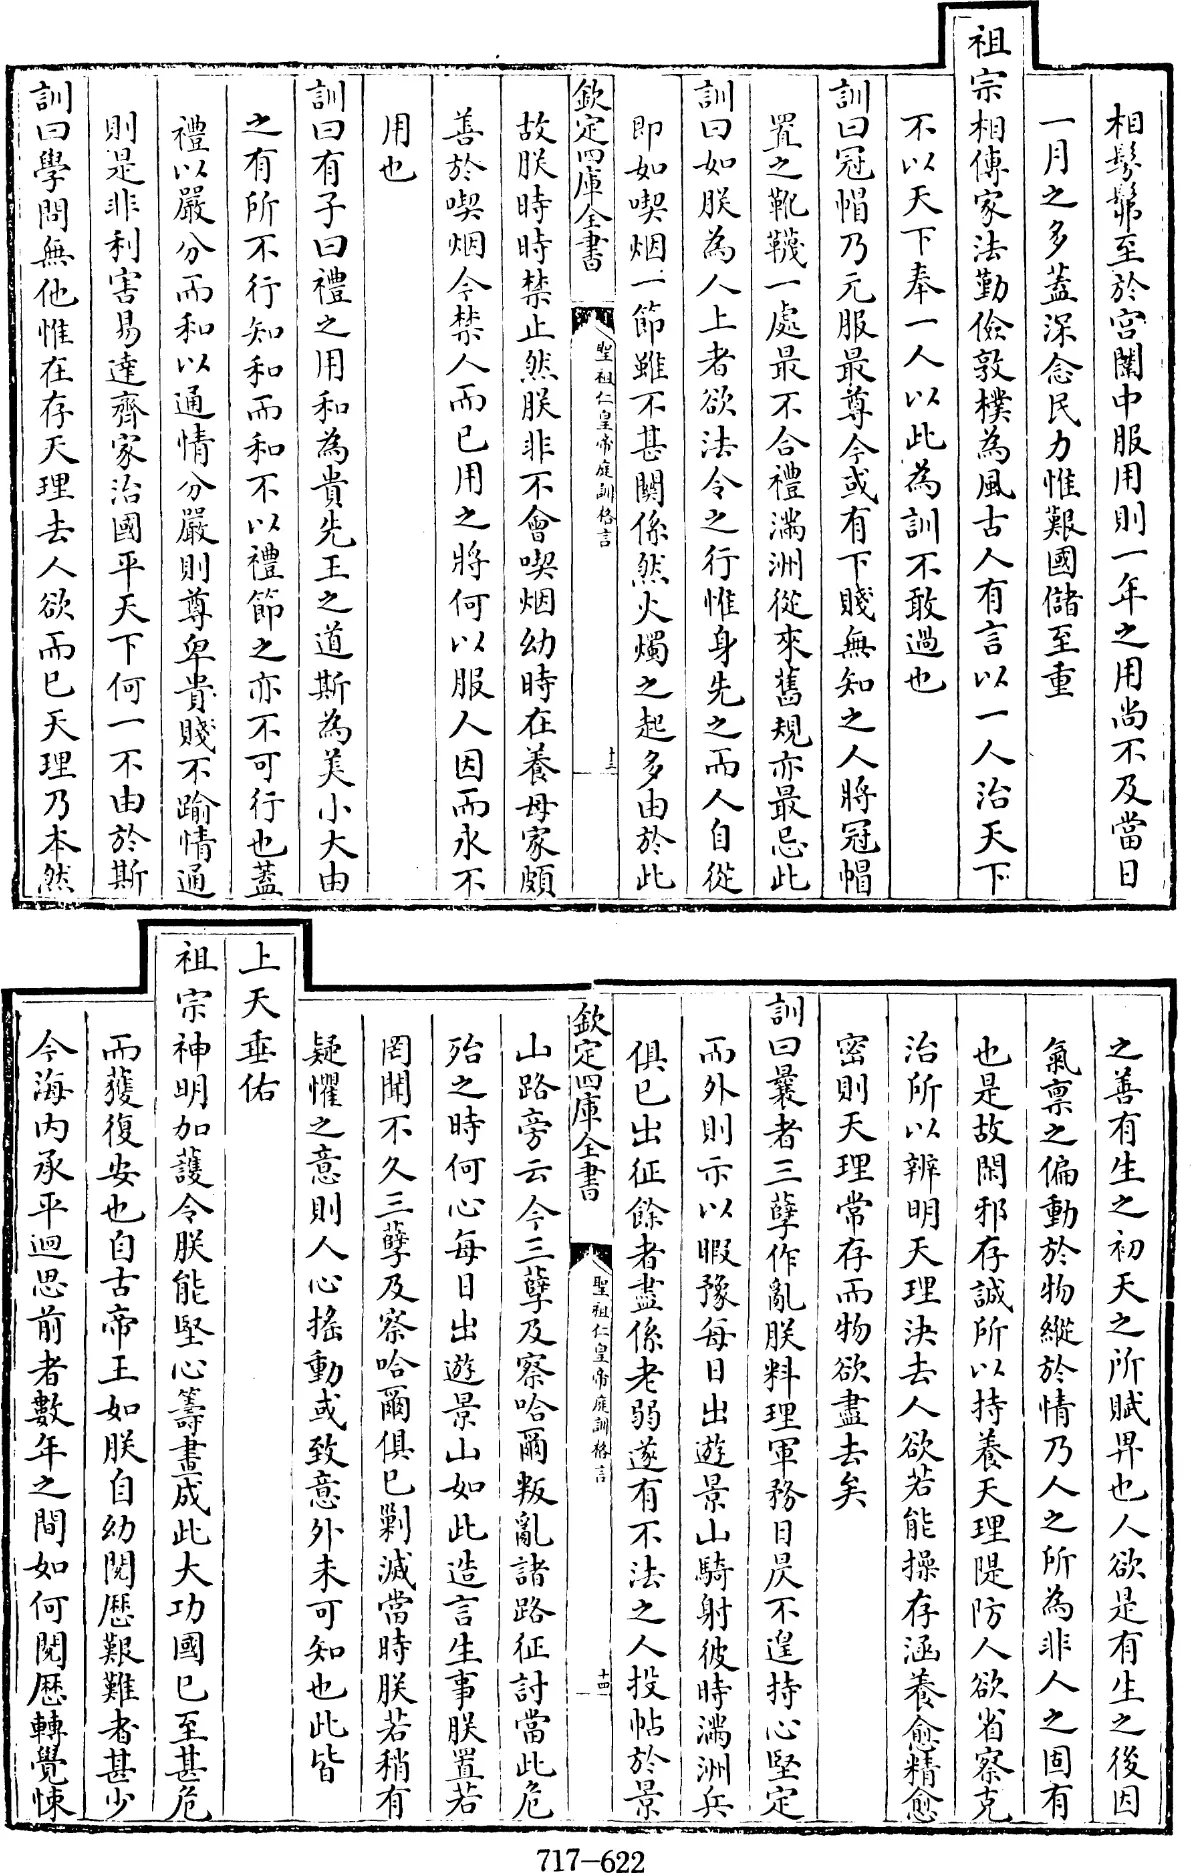 相髣髴至於宫闈中服用則一年之用尚不及當日
一月之多蓋深念民力惟艱國儲至重
祖宗相傳家法勤儉敦樸為風古人有言以一人治天下
不以天下奉一人以此為訓不敢過也
訓曰冠帽乃元服最尊今或有下賤無知之人將冠帽
置之靴韈一處最不合禮滿洲從來舊規亦最忌此
訓曰如朕為人上者欲法令之行惟身先之而人自從
即如喫烟一節雖不甚關係然火燭之起多由於此
欽定四庫全書
聖祖仁皇帝庭訓格言
十三
故朕時時禁止然朕非不會喫烟幼時在養母家頗
善於喫烟今禁人而已用之將何以服人因而永不
用也
訓曰有子曰禮之用和為貴先王之道斯為美小大由
之有所不行知和而和不以禮節之亦不可行也蓋
禮以嚴分而和以通情分嚴則尊卑貴賤不踰情通
則是非利害易達齊家治國平天下何一不由於斯
訓曰學問無他惟在存天理去人欲而已天理乃本然
之善有生之初天之所賦畀也人欲是有生之後因
氣禀之偏動於物縱於情乃人之所為非人之固有
也是故閑邪存誠所以持養天理隄防人欲省察克
治所以辨明天理決去人欲若能操存涵養愈精愈
密則天理常存而物欲盡去矣
訓曰曩者三孽作亂朕料理軍務日昃不遑持心堅定
而外則示以暇豫每日出遊景山騎射彼時滿洲兵
俱已出征餘者盡係老弱遂有不法之人投帖於景
欽定四庫全書
聖祖仁皇帝庭訓格言
十四
山路旁云今三孽及察哈爾叛亂諸路征討當此危
殆之時何心每日出遊景山如此造言生事朕置若
罔聞不久三孽及察哈爾俱已剿滅當時朕若稍有
疑懼之意則人心搖動或致意外未可知也此皆
上天垂佑
祖宗神明加護令朕能堅心籌畫成此大功國已至甚危
而獲復安也自古帝王如朕自幼閱歷艱難者甚少
今海内承平迴思前者數年之間如何閱歷轉覺悚
717-622